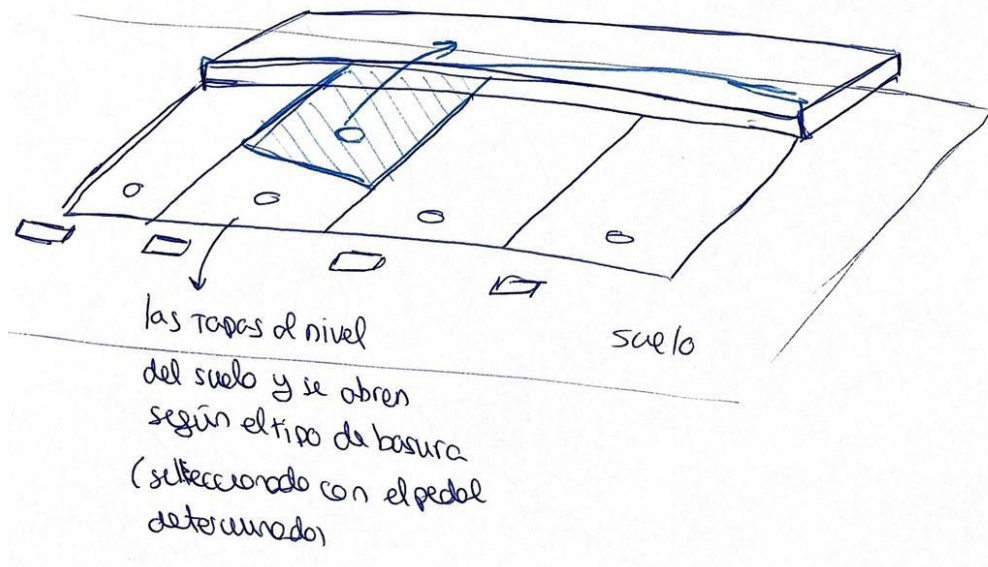 las tapas al nivel
del suelo y se abren
según el tipo de basura
(selecccionado con el pedal
determinado)
suelo